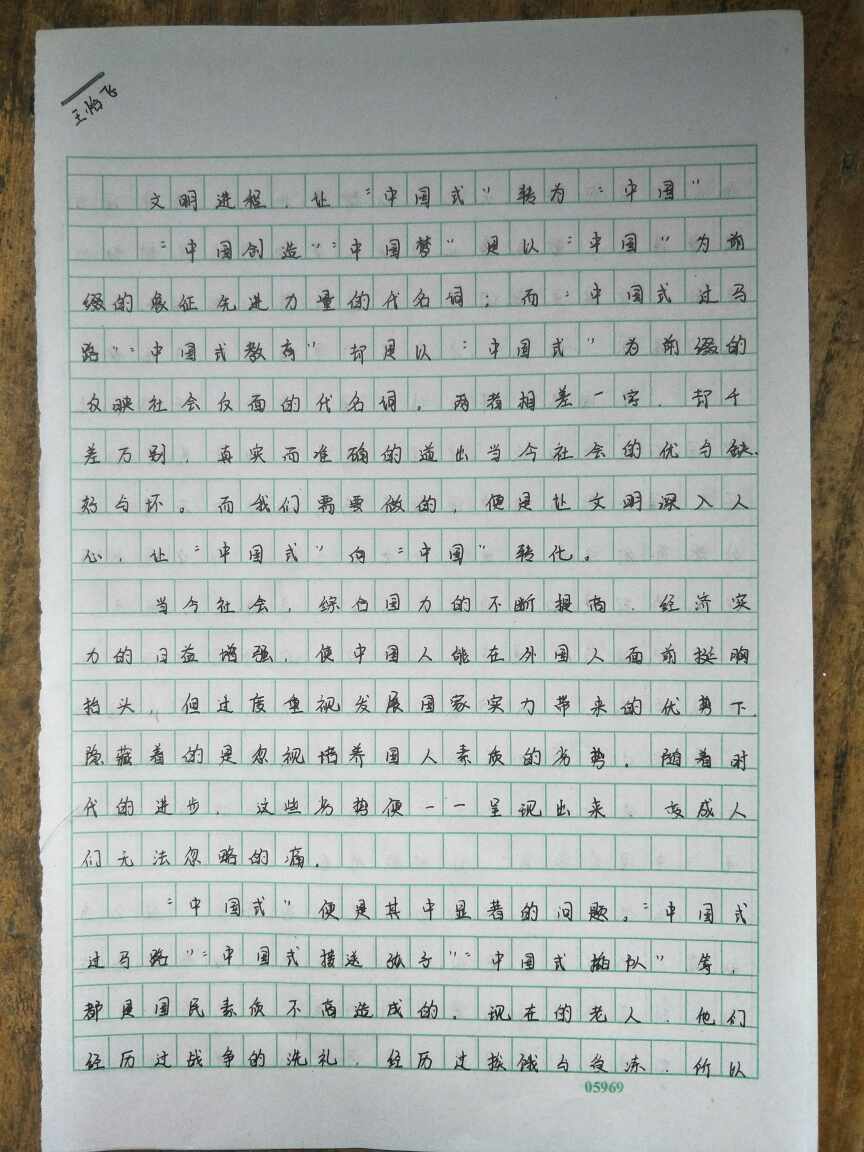 王怡飞
文明进程，让“中国式”转为“中国”
“中国创造”“中国梦”是以“中国”为前
缀的象征先进力量的代名词；而“中国式过马
路”“中国式教育”却是以“中国式”为前缀的
反映社会反面的代名词。两者相差一字，却千
差万别，真实而准确的道出当今社会的优与缺，
好与坏。而我们需要做的，便是让文明深入人
心，让“中国式”向“中国”转化。
当今社会，综合国力的不断提高，经济实
力的日益增强，使中国人能在外国人面前挺胸
抬头，但过度重视发展国家实力带来的优势下，
隐藏着的是忽视培养国人素质的劣势。随着时
代的进步，这些劣势便一一呈现出来，变成人
们无法忽略的痛。
“中国式”便是其中显著的问题。“中国式
过马路”“中国式接送孩子”“中国式排队”等，
都是国民素质不高造成的。现在的老人，他们
经历过战争的洗礼，经历过挨饿与受冻，所以
05969